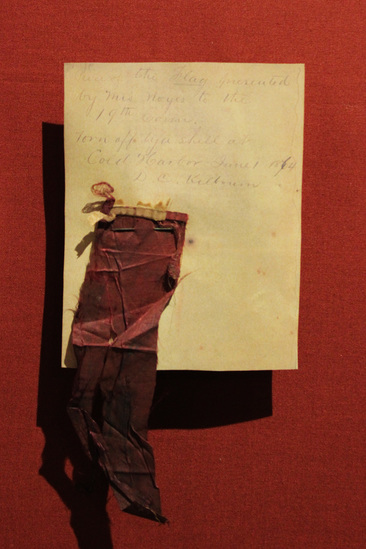 the Flag presented
by Mrs Noyes to the
19th Conn.
Torn off by a shell at
Cold Harbor June 1 1864
D. C. Kilbourn